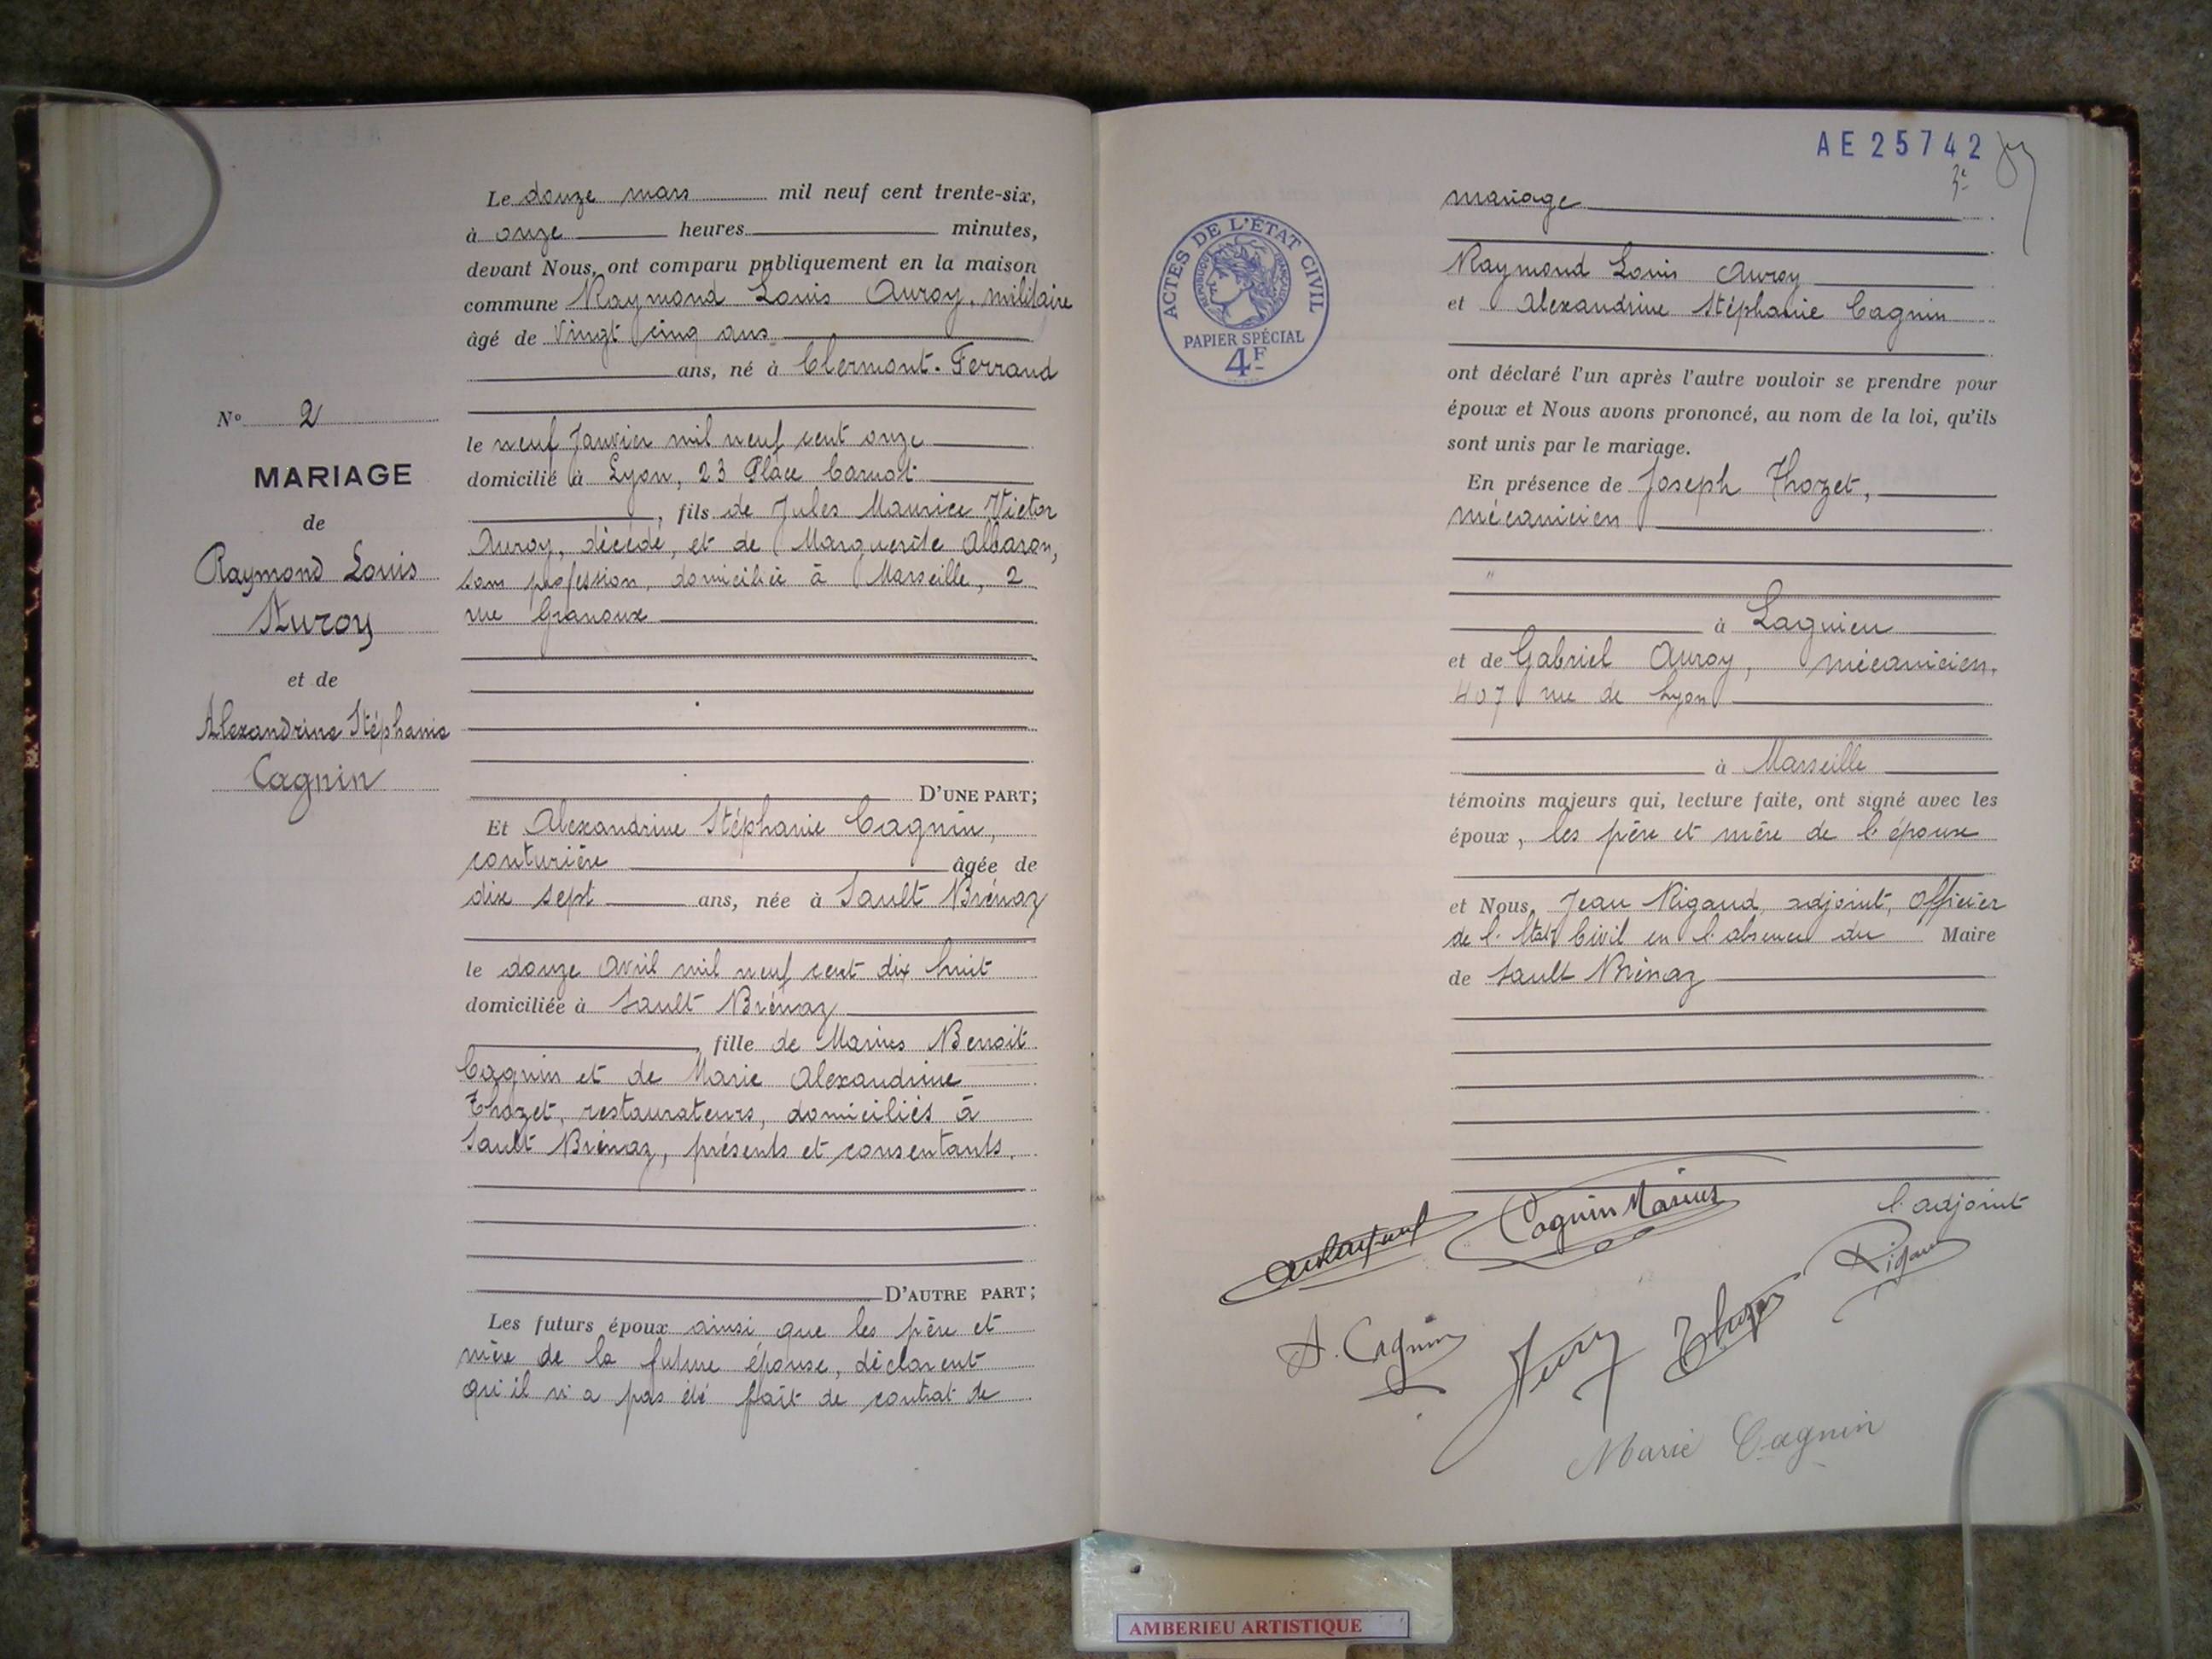 Le douze mars mil neuf cent trente-six,
à onze heures minutes,
devant Nous, ont comparu publiquement en la maison
commune Raymond Louis Auroy, militaire
âgé de vingt cinq ans
ans, né à Clermont-Ferrand
le neuf Janvier mil neuf cent onze
domicilié à Lyon, 23 Place Carnot
, fils de Jules Maurice Victor
Auroy, décédé, et de Marguerite Albaron,
sans profession, domiciliée à Marseille, 2
rue Granoux
D'UNE PART;
Et Alexandrine Stéphanie Cagnin,
couturière âgée de
dix sept ans, née à Sault Brénaz
le douze Avril mil neuf cent dix huit
domiciliée à Sault Brénaz
, fille de Marius Benoit
Cagnin et de Marie Alexandrine
Thozet, restaurateurs, domiciliés à
Sault Brénaz, présents et consentants.
D'AUTRE PART;
Les futurs époux ainsi que les père et
mère de la future épouse, déclarent
qu'il n'a pas été fait de contrat de
N° 2
MARIAGE
de
Raymond Louis
Auroy
et de
Alexandrine Stéphanie
Cagnin
AE25742
ACTES DE L'ÉTAT CIVIL
RÉPUBLIQUE FRANÇAISE
PAPIER SPÉCIAL
4F
mariage
Raymond Louis Auroy
et Alexandrine Stéphanie Cagnin
ont déclaré l'un après l'autre vouloir se prendre pour
époux et Nous avons prononcé, au nom de la loi, qu'ils
sont unis par le mariage.
En présence de Joseph Thozet,
mécanicien
à Lagnieu
et de Gabriel Auroy, mécanicien,
407 rue de Lyon
à Marseille
témoins majeurs qui, lecture faite, ont signé avec les
époux, les père et mère de l'épouse
et Nous, Jean Rigaud, adjoint, Officier
de l'Etat Civil en l'absence du Maire
de Sault Brénaz
Cagnin Marius
l'adjoint
Rigaud
A. Cagnin
Auroy
Thozet
Marie Cagnin
AMBERIEU ARTISTIQUE